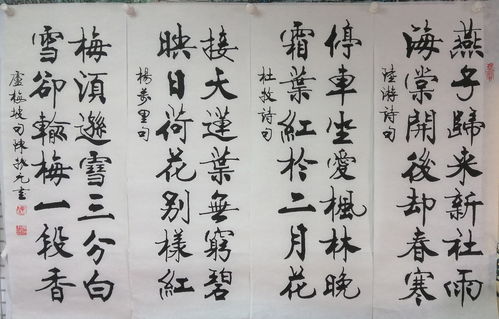 燕子歸来新社雨
海棠開後却春寒
陸游詩句
停車坐愛楓林晚
霜葉紅於二月花
杜牧詩句
接天蓮葉無窮碧
映日荷花别樣紅
楊萬里句
梅須遜雪三分白
雪卻輸梅一段香
盧梅坡句陳振元書